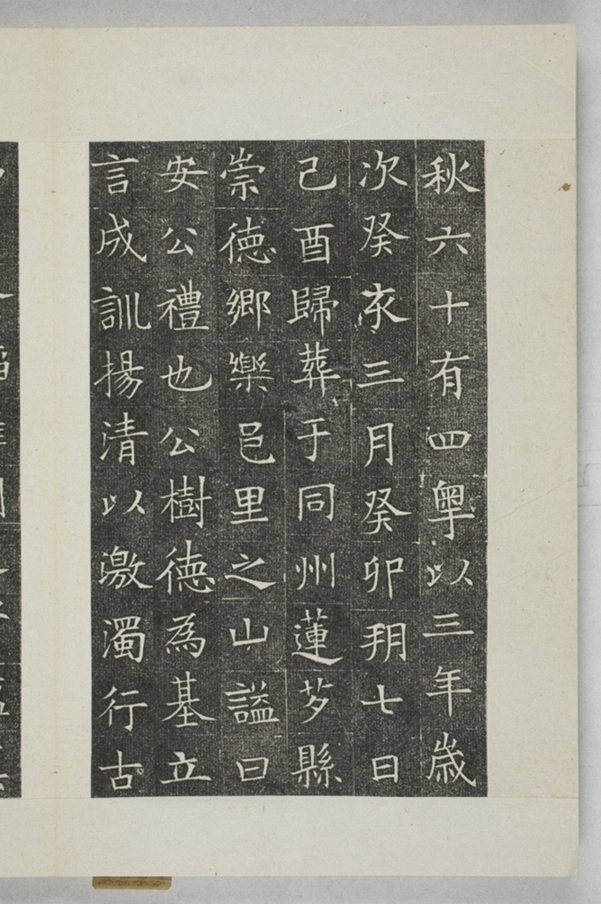 秋六十有四粤以三年歲
次癸亥三月癸卯朔七日
己酉歸葬于同州蓮芍縣
崇德鄉樂邑里之山謚曰
安公禮也公樹德為基立
言成訓揚清以激濁行古